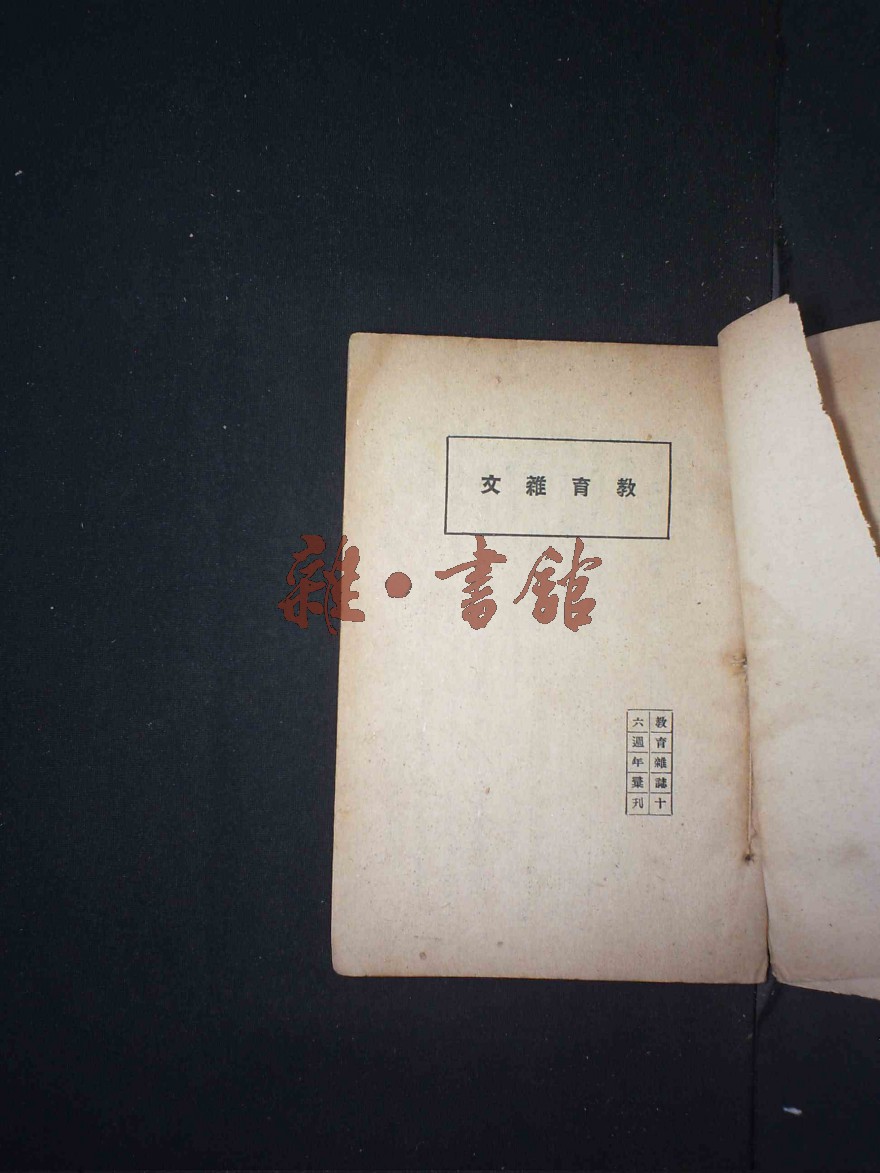 教育雜文
雜·書館
教育雜誌十
六週年彙刊